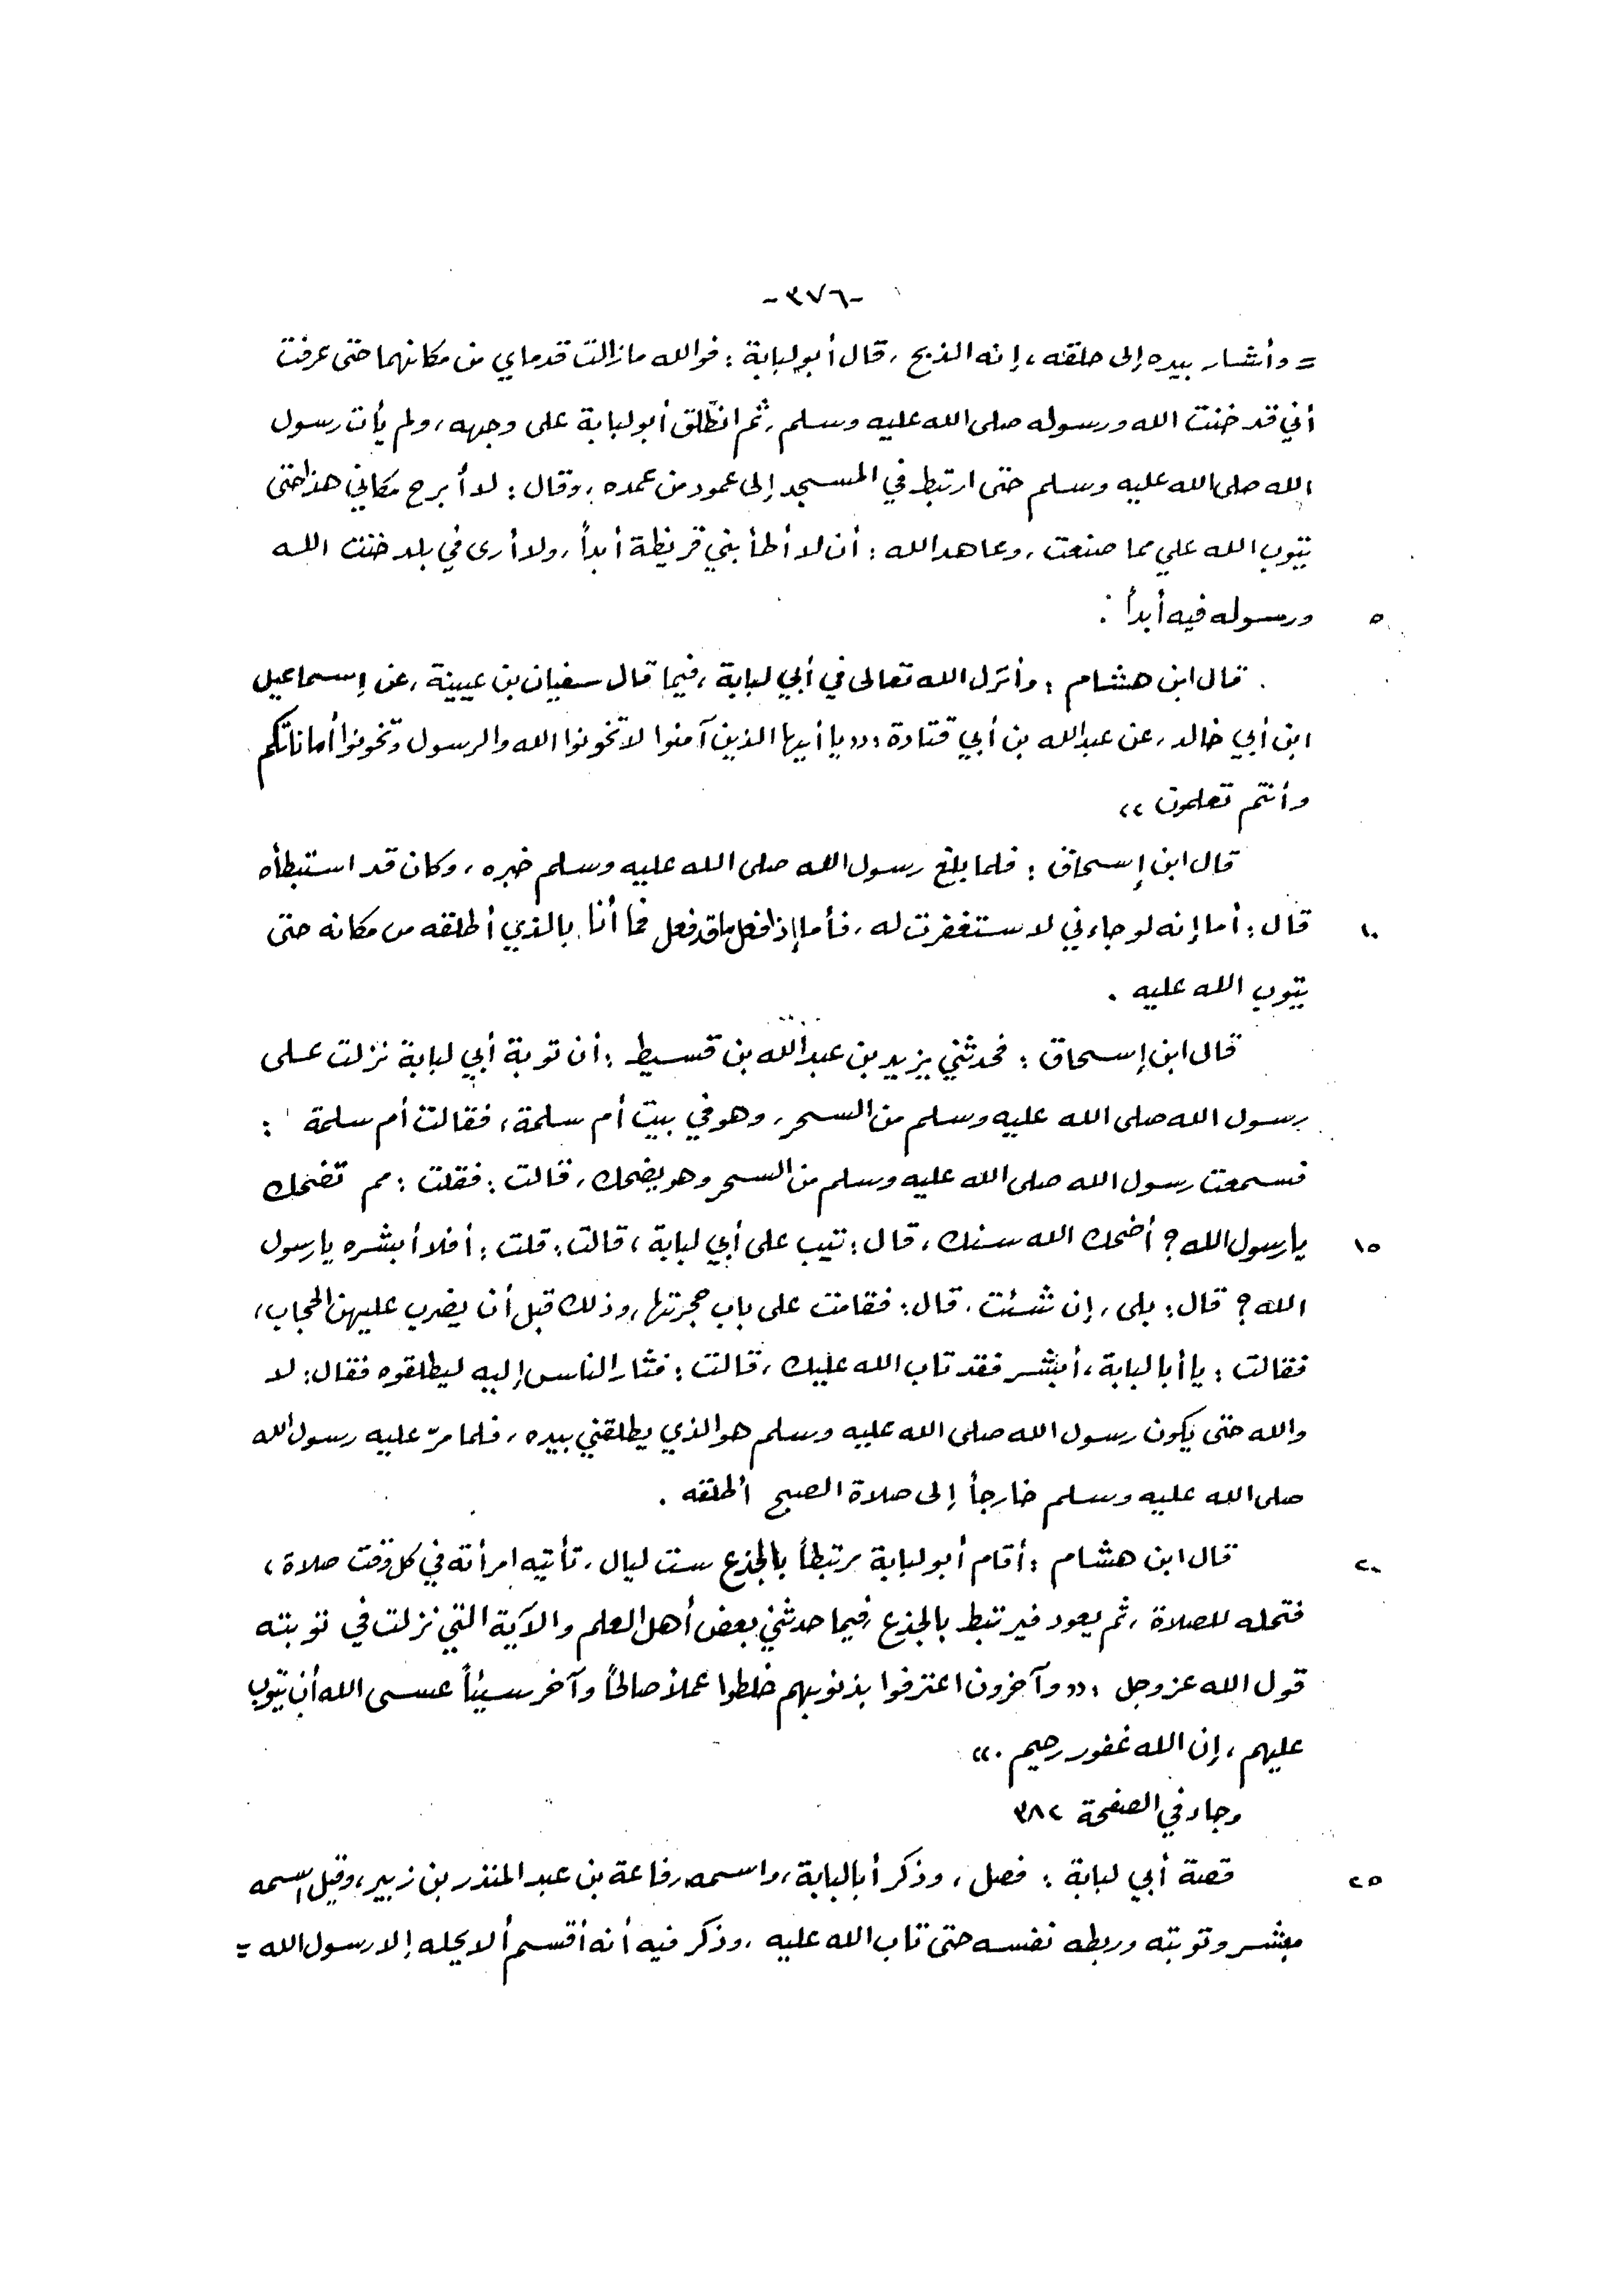 -٣٧٦-
= وأشار بيده إلى حلقه، إنه الذبح، قال أبو لبابة: فوالله مازالت قدماي من مكانهما حتى عرفت
أني قد خنت الله ورسوله صلى الله عليه وسلم، ثم انطلق أبو لبابة على وجهه، ولم يأت رسول
الله صلى الله عليه وسلم حتى ارتبط في المسجد إلى عمود من عمده، وقال: لا أبرح مكاني هذا حتى
يتوب الله علي مما صنعت، وعاهد الله: أن لا أطأ بني قريظة أبداً، ولا أرى في بلد خنت الله
٥ ورسوله فيه أبداً.
قال ابن هشام: وأنزل الله تعالى في أبي لبابة، فيما قال سفيان بن عيينة، عن إسماعيل
ابن أبي خالد، عن عبدالله بن أبي قتادة: «يا أيها الذين آمنوا لا تخونوا الله والرسول وتخونوا أماناتكم
وأنتم تعلمون»
قال ابن إسحاق: فلما بلغ رسول الله صلى الله عليه وسلم خبره، وكان قد استبطأه
١٠ قال: أما إنه لو جاءني لاستغفرت له، فأما إذ فعل ما قد فعل فما أنا بالذي أطلقه من مكانه حتى
يتوب الله عليه.
قال ابن إسحاق: فحدثني يزيد بن عبدالله بن قسيط: أن توبة أبي لبابة نزلت على
رسول الله صلى الله عليه وسلم من السحر، وهو في بيت أم سلمة، فقالت أم سلمة:
فسمعت رسول الله صلى الله عليه وسلم من السحر وهو يضحك، قالت: فقلت: مم تضحك
١٥ يا رسول الله؟ أضحك الله سنك، قال: تيب على أبي لبابة، قالت: قلت: أفلا أبشره يا رسول
الله؟ قال: بلى، إن شئت. قال: فقامت على باب حجرتها، وذلك قبل أن يضرب عليهن الحجاب،
فقالت: يا أبا لبابة، أبشر فقد تاب الله عليك، قالت: فثار الناس إليه ليطلقوه فقال: لا
والله حتى يكون رسول الله صلى الله عليه وسلم هو الذي يطلقني بيده، فلما مرّ عليه رسول الله
صلى الله عليه وسلم خارجاً إلى صلاة الصبح أطلقه.
٢٠ قال ابن هشام: أقام أبو لبابة مرتبطاً بالجذع ست ليال، تأتيه امرأته في كل وقت صلاة،
فتحله للصلاة، ثم يعود فيرتبط بالجذع، فيما حدثني بعض أهل العلم والآية التي نزلت في توبته
قول الله عز وجل: «وآخرون اعترفوا بذنوبهم خلطوا عملاً صالحاً وآخر سيئاً عسى الله أن يتوب
عليهم، إن الله غفور رحيم.»
وجاء في الصفحة ٣٨٢
٢٥ قصة أبي لبابة: فصل، وذكر أبا لبابة، واسمه رفاعة بن عبد المنذر بن زبير، وقيل اسمه
مبشر وتوبته وربطه نفسه حتى تاب الله عليه، وذكر فيه أنه أقسم ألا يحله إلا رسول الله =